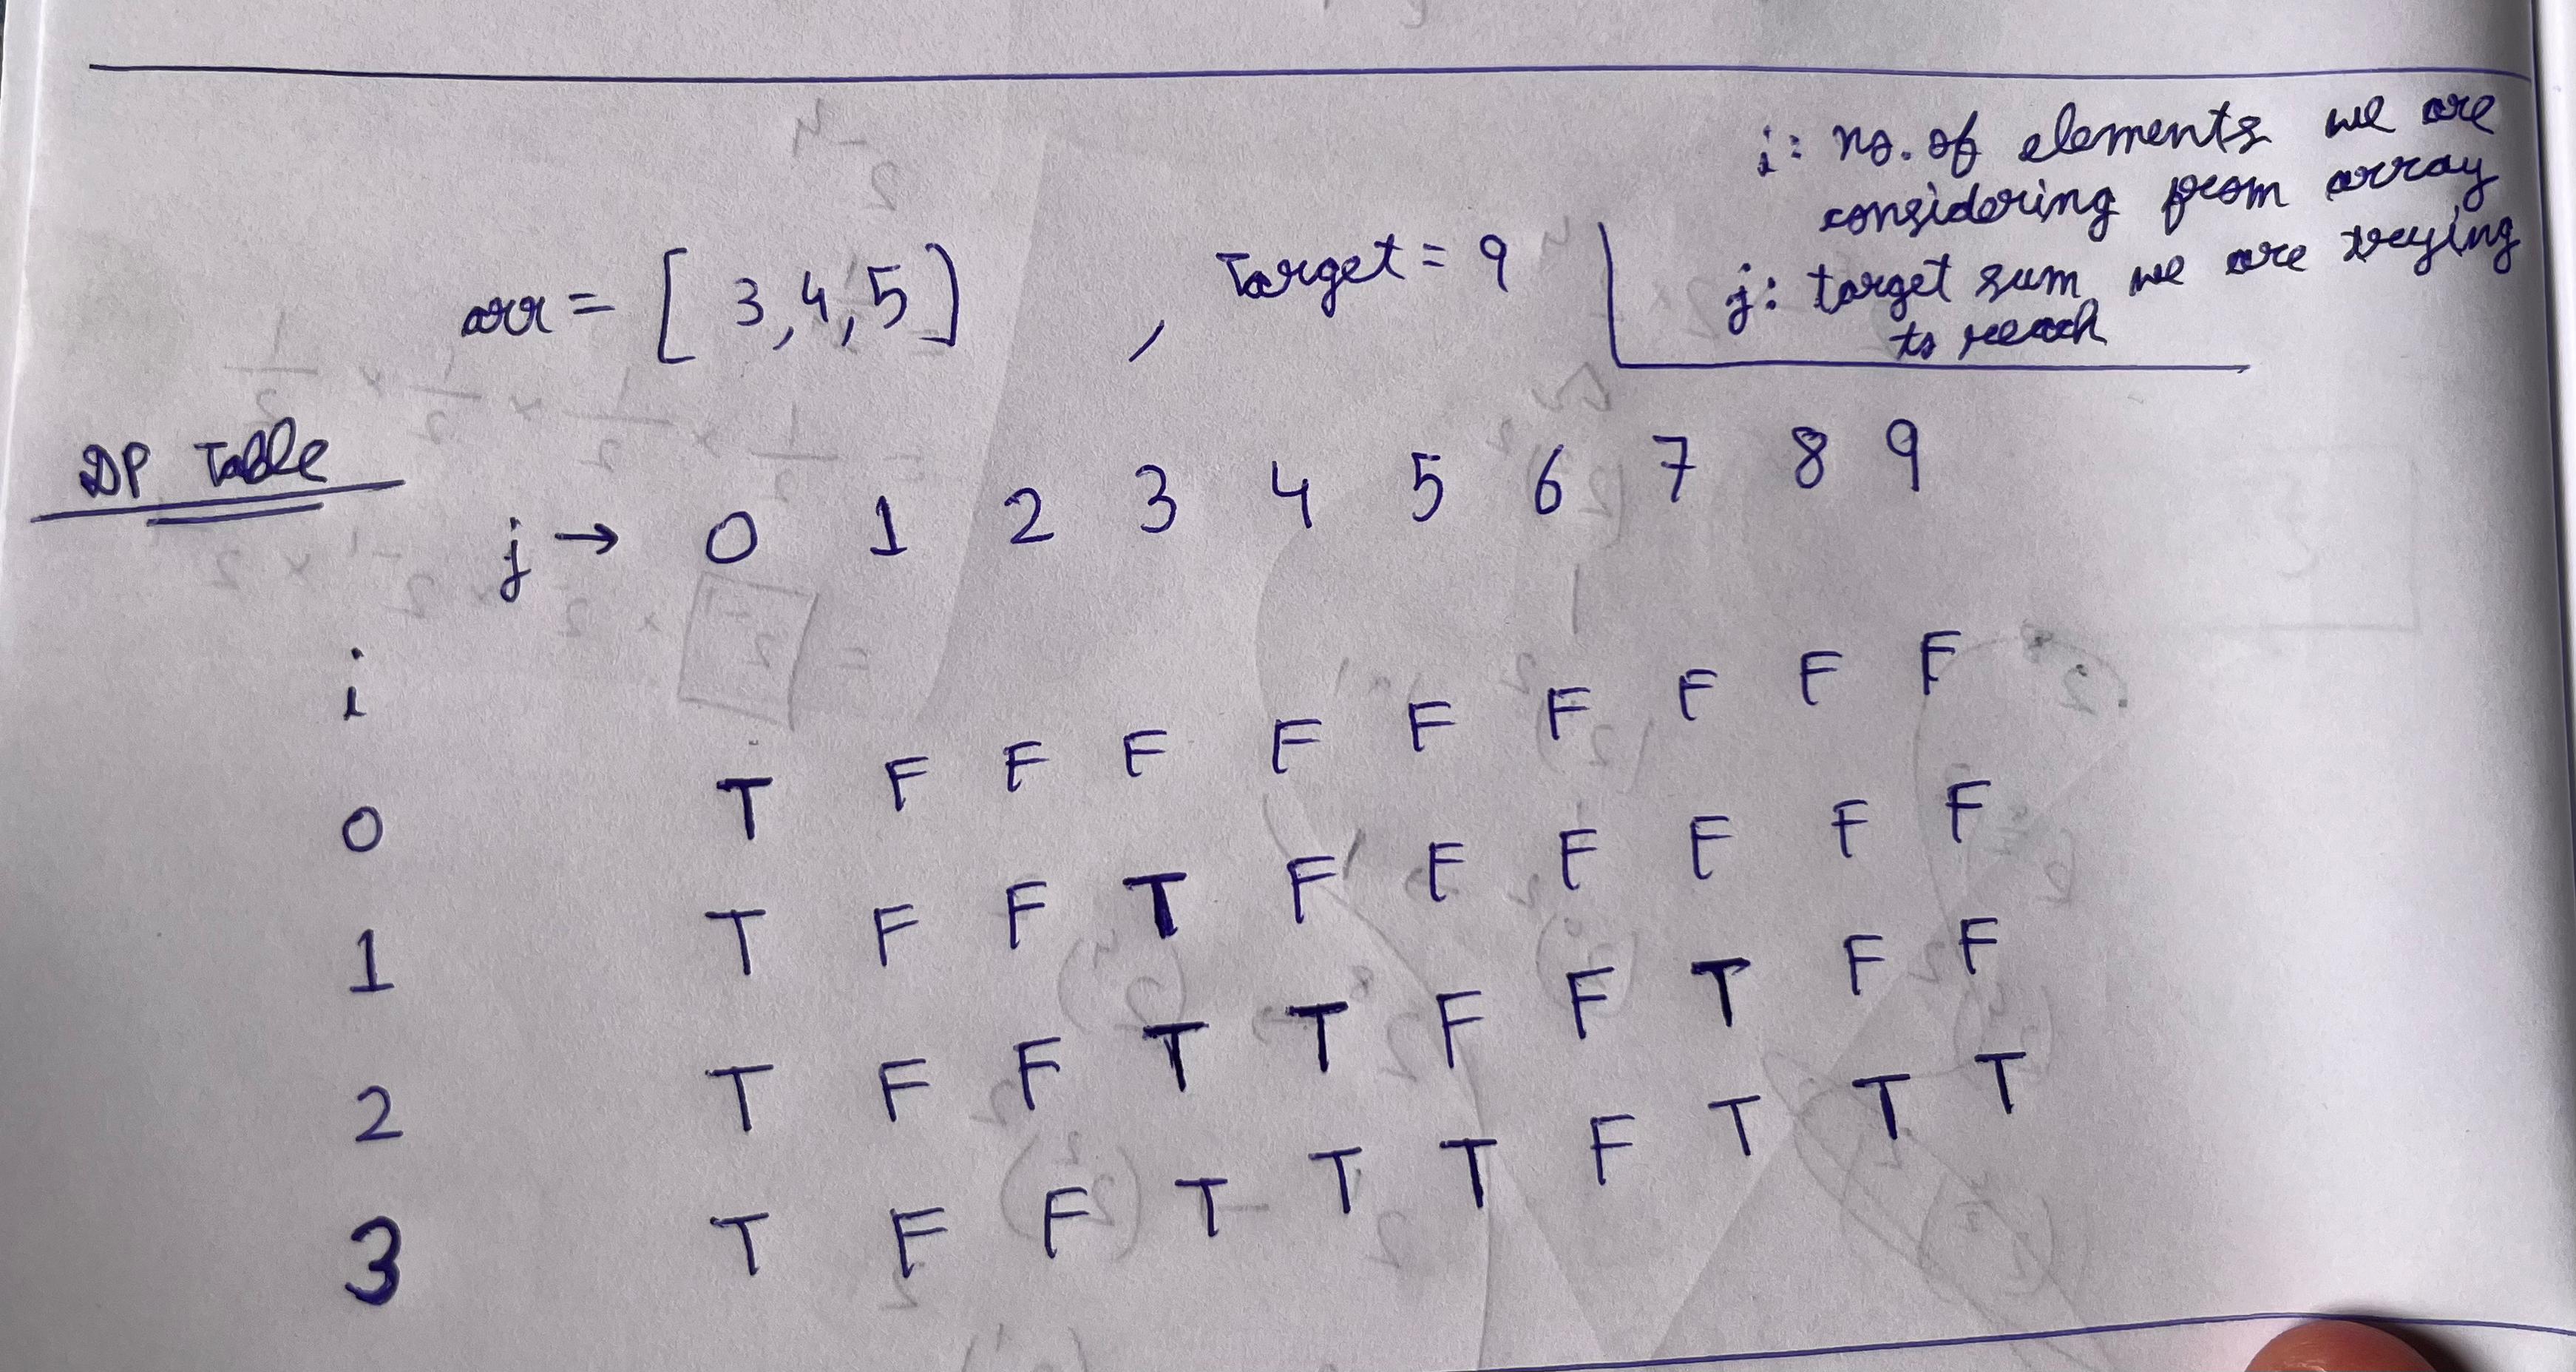 i: no. of elements we are
considering from array
arr = [3,4,5] , Target = 9
j: target sum we are trying
to reach
DP Table
j → 0 1 2 3 4 5 6 7 8 9
i
0 T F F F F F F F F F
1 T F F T F F F F F F
2 T F F T T F F T F F
3 T F F T T T F T T T